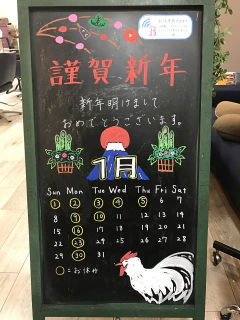 謹賀新年
新年明けまして
おめでとうございます。
1月
Sun Mon Tue Wed Thu Fri Sat
1 2 3 4 5 6 7
8 9 10 11 12 13 14
15 16 17 18 19 20 21
22 23 24 25 26 27 28
29 30 31
○=お休み